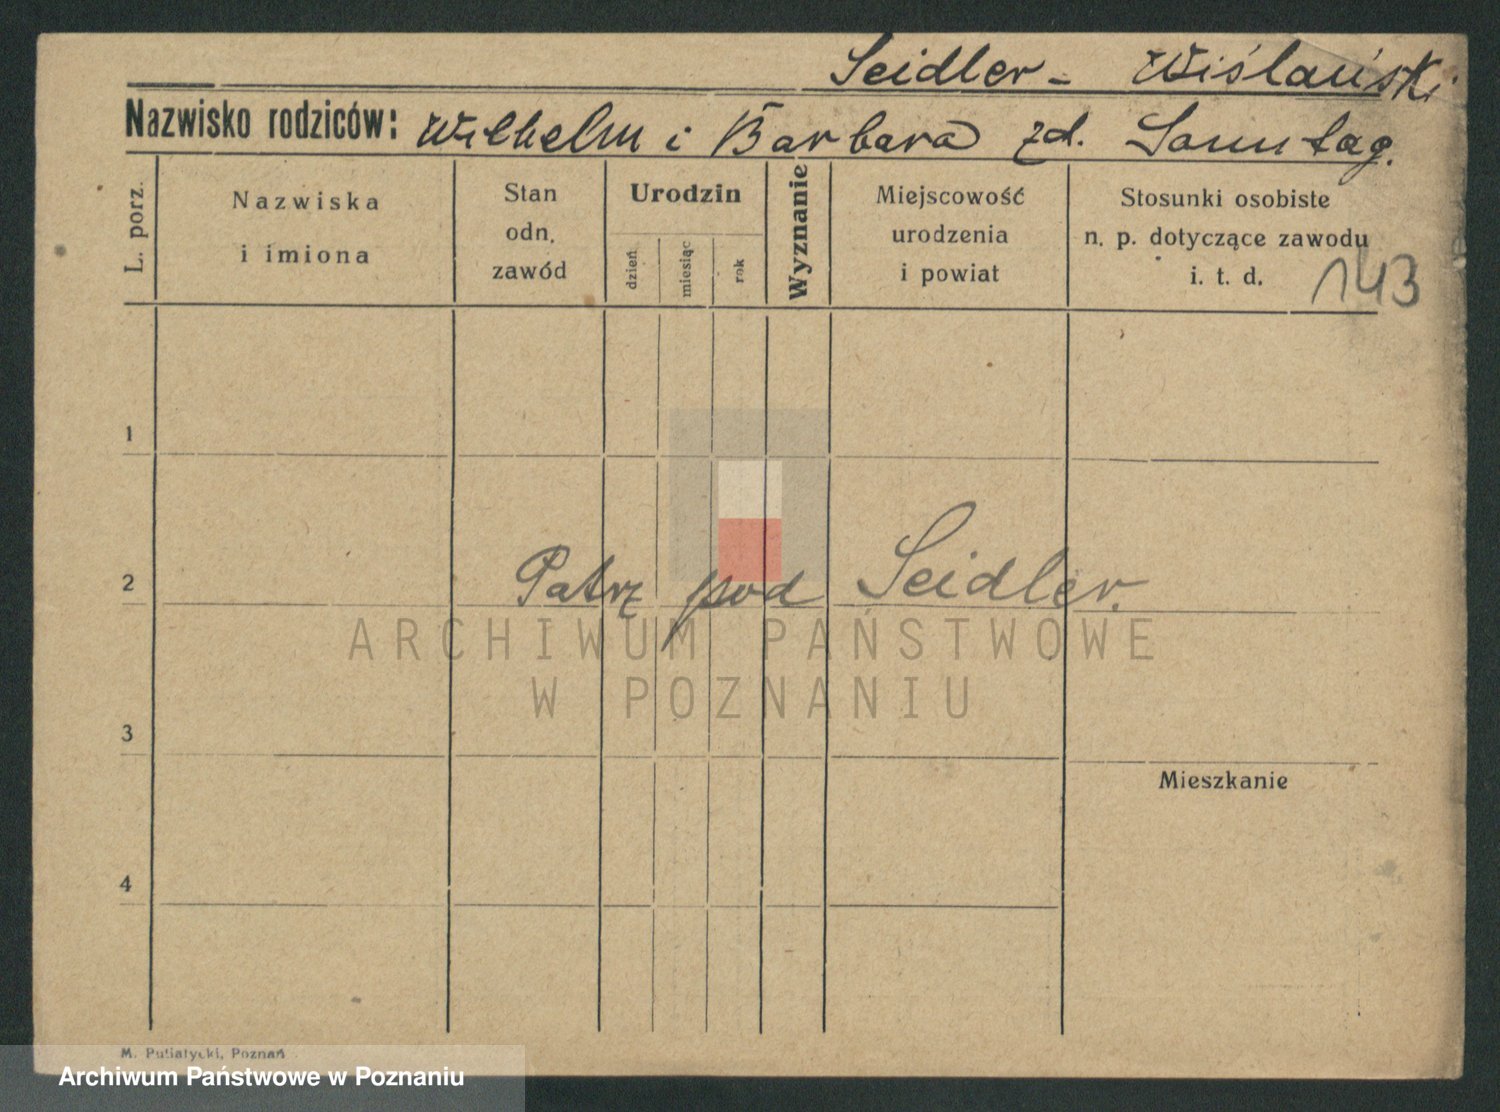 Seidler - Wiślański
Nazwisko rodziców: Wilhelm i Barbara zd. Sonntag.
L. porz.
Nazwiska
i imiona
Stan
odn.
zawód
Urodzin
dzień
miesiąc
rok
Wyznanie
Miejscowość
urodzenia
i powiat
Stosunki osobiste
n. p. dotyczące zawodu
i. t. d.
143
1
2
Patrz pod Seidler.
ARCHIWUM PAŃSTWOWE
W POZNANIU
3
Mieszkanie
4
M. Putiatycki, Poznań
Archiwum Państwowe w Poznaniu